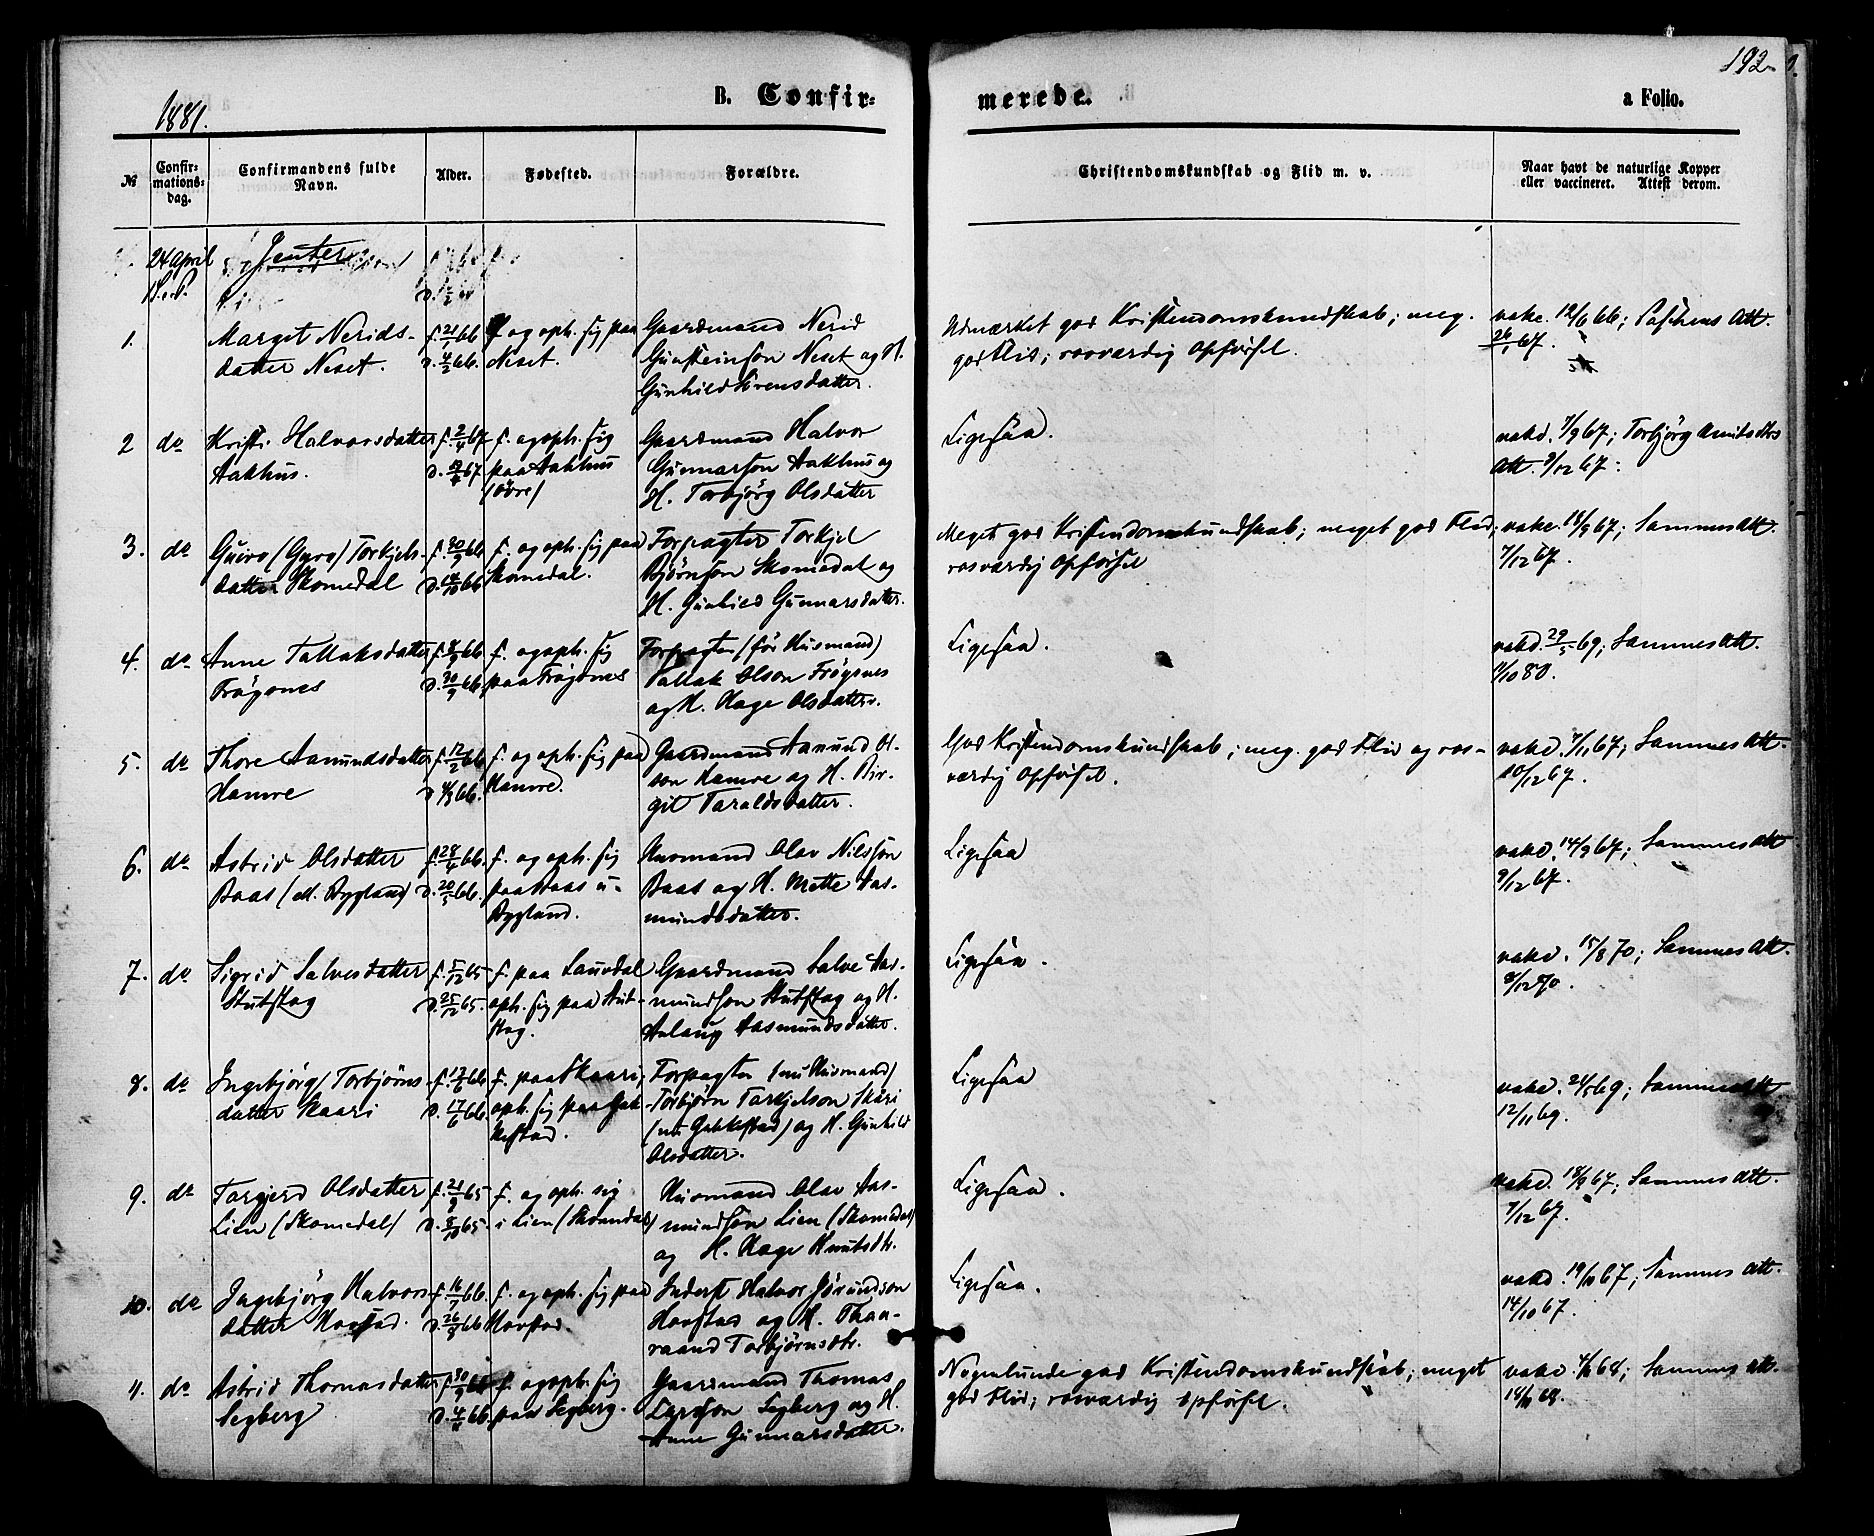 192.
1881.
B. Confir-
merede.
a Folio.
№
Confir-
mations-
dag.
Confirmandens fulde
Navn.
Alder.
Fødested.
Forældre.
Christendomskundskab og Flid m. v.
Naar havt de naturlige Kopper
eller vaccineret. Attest derom.
24 april
Jenter
1.
Marget Nerids-
datter Neset.
f. 21/1 66
D. 4/2 66.
og oph. sig paa
Neset.
Gaardmand Nerid
Gunsteinson Neset og H.
Gunhild Sørensdatter.
Udmærket god Kristendomskundskab; meg.
god Flid; rosværdig Opførsel.
vakc. 12/6 66; Att.
26/1 67.
2 do
Kristi Halvorsdatter
Aakhus.
f. og oph. sig
paa Aakhus
(øvre)
Gaardmand Halvor
Gunnarson Aakhus og
H. Torbjørg Olsdatter
Ligesaa.
vakd. 7/9 67; Torbjørg
Att. 9/12 67.
3. do
Guro (Gyro) Torkjels-
datter Skomedal
f. og oph. sig paa
Skomedal.
Forpagter Torkjel
Bjørnson Skomedal og
H. Gunhild Gunnarsdatter.
Meget god Kristendomskundskab; meget god Flid;
rosværdig Opførsel
vakc. 18/9 67; Sammes Att.
7/12 67.
4. do
Anne Tallaksdatter
Frøysnes
D. 30/9 66
f. og oph. sig
paa Frøysnes
Forpagter (før Husmand)
Tallak Olson Frøysnes
og H. Hage Olsdatter.
Ligesaa.
vakd. 29/5 69; Sammes Att.
11/10 80.
5. do
Thore Aanundsdatter
Hamre
f. 12/2 66
D. 4/3 66.
f. og oph. sig paa
Hamre.
Gaardmand Aanund Ol-
son Hamre og H. Bir-
git Taraldsdatter.
God Kristendomskundskab; meg. god Flid og ros-
værdig Opførsel.
vakd. 7/11 67; Sammes Att.
10/12 67.
6. do
Astrid Olsdatter
Baas (M. Bygland)
f. 28/4 66.
D. 20/5 66.
f. og oph. sig
paa Baas u-
Bygland.
Husmand Olav Nilsson
Baas og H. Mette Aas-
mundsdatter.
Ligesaa
vakd. 14/9 67; Sammes Att
9/12 67.
7. do
Sigrid Salvesdatter
Stutstag
f. 5/12 65
D. 25/12 65.
f. paa Lauvdal
oph. sig paa Stut-
stag.
Gaardmand Salve Aas-
mundson Stutstag og H.
Aslaug Aasmundsdatter.
Ligesaa.
vakd. 15/8 70; Sammes Att.
8/12 70.
8. do
Ingebjørg Torbjørns-
datter Skaari
D. 17/6 66.
f. paa Skaari,
oph. sig paa Gak-
kestad.
Forpagter (nu Husmand)
Torbjørn Tarkjelson Skari
(nu Gakkestad) og H. Gunhild
Olsdatter.
Ligesaa
vakd. 24/5 69; Sammes Att
12/11 69.
9. do
Targjerd Olsdatter
Lien (Skomedal)
f. 21/9 65
D. 8/10 65.
f. og oph. sig
i Lien (Skomedal)
Husmand Olav Aas-
mundson Lien (Skomedal)
og H. Hage Knutsdtr.
Ligesaa.
vakd. 18/9 67; Sammes Att.
7/12 67.
10. do
Ingebjørg Halvors-
datter Hovstad.
f. 16/7 66.
D. 26/8 66
f. og oph. sig paa
Hovstad.
Inderst Halvor Jørundson
Hovstad og H. Thaa-
raand Torbjørnsdtr.
Ligesaa.
vakd. 19/10 67; Sammes Att.
14/10 67.
11. do
Astrid Thomasdatter
Segberg
f. og oph. sig
paa Segberg.
Gaardmand Thomas
Larsson Segberg og H.
Anne Gunnarsdatter.
Nogenlunde god Kristendomskundskab; meget
god Flid; rosværdig Opførsel.
vakd. 68; Sammes att.